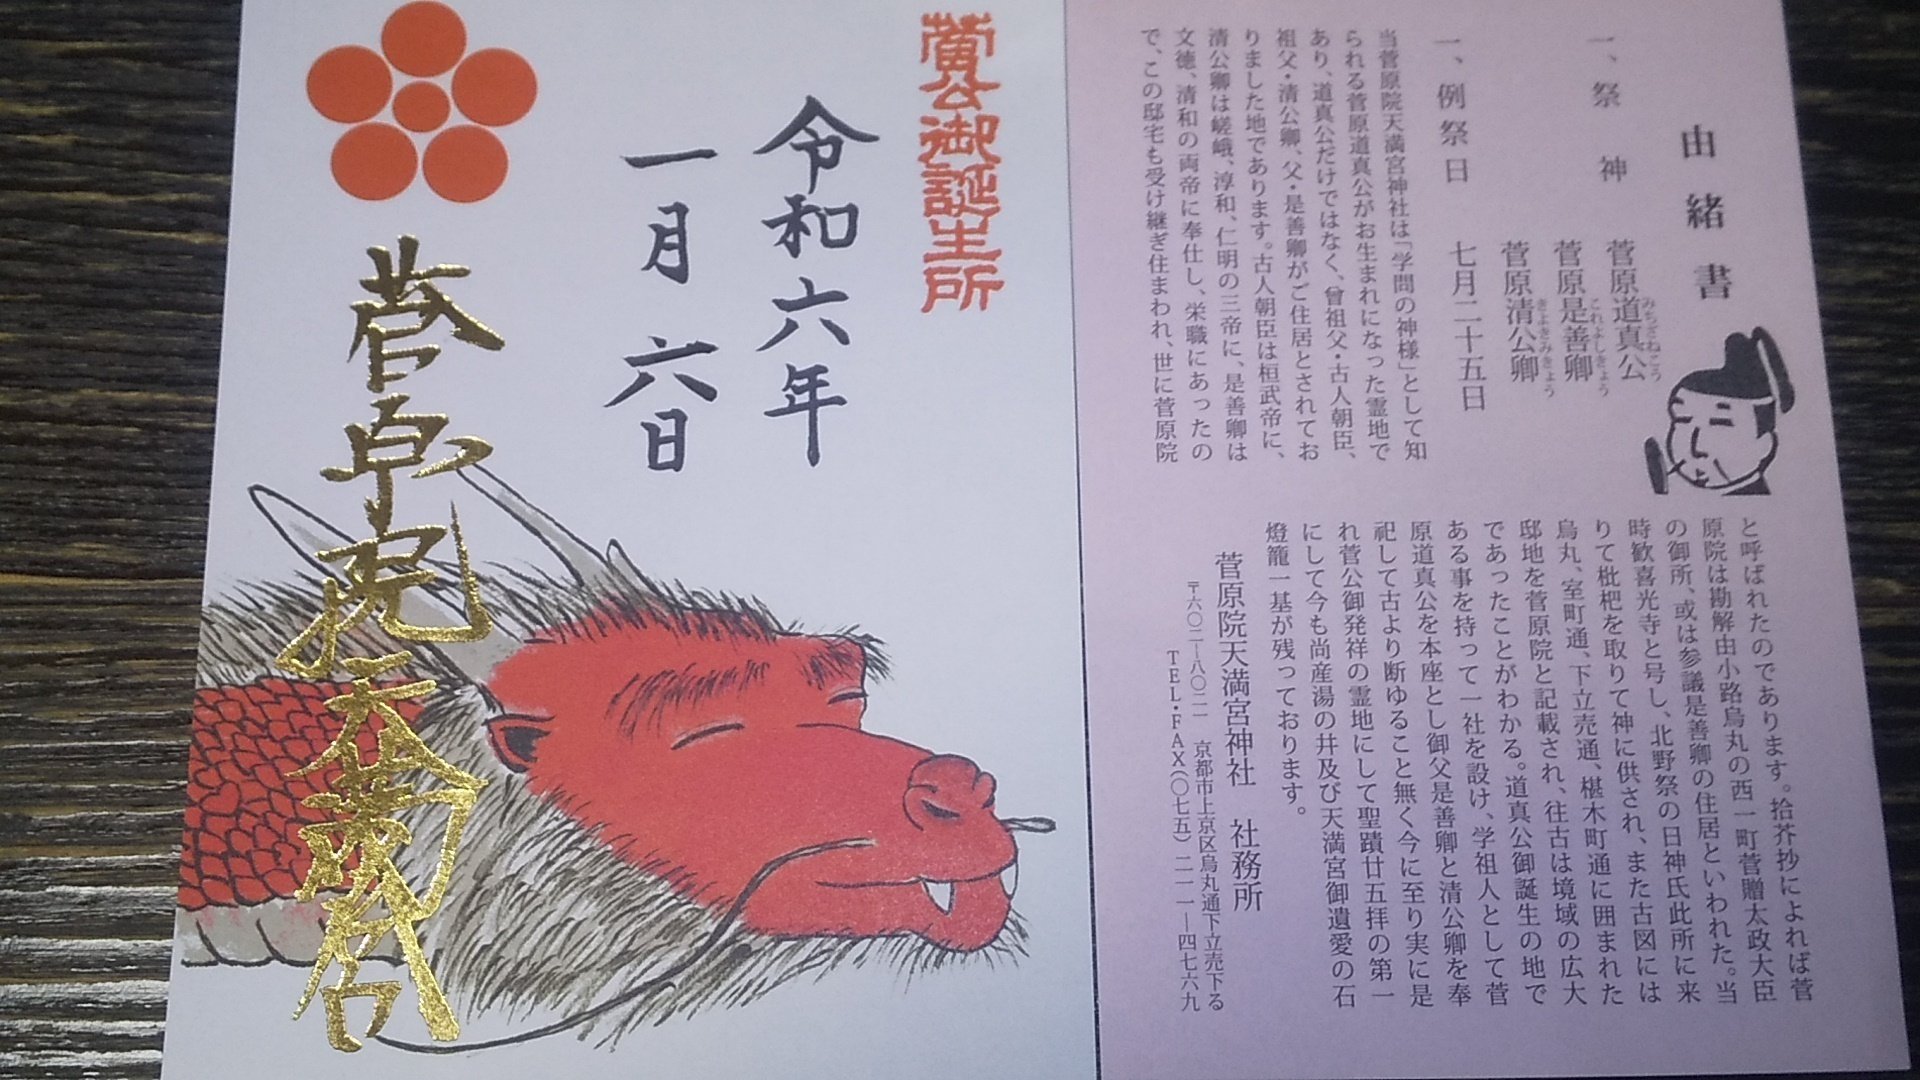 由緒書
一、祭　神　菅原道真公
みちざねこう
菅原是善卿
これよしきょう
菅原清公卿
きよきみきょう
一、例祭日　七月二十五日
当菅原院天満宮神社は「学問の神様」として知
られる菅原道真公がお生まれになった霊地で
あり、道真公だけではなく、曾祖父・古人朝臣、
祖父・清公卿、父・是善卿がご住居とされてお
りました地であります。古人朝臣は桓武帝に、
清公卿は嵯峨、淳和、仁明の三帝に、是善卿は
文徳、清和の両帝に奉仕し、栄職にあったの
で、この邸宅も受け継ぎ住まわれ、世に菅原院
と呼ばれたのであります。拾芥抄によれば菅
原院は勘解由小路烏丸の西一町菅贈太政大臣
の御所、或は参議是善卿の住居といわれた。当
時歓喜光寺と号し、北野祭の日神氏此所に来
りて枇杷を取りて神に供され、また古図には
烏丸、室町通、下立売通、椹木町通に囲まれた
邸地を菅原院と記載され、往古は境域の広大
であったことがわかる。道真公御誕生の地で
ある事を持って一社を設け、学祖人として菅
原道真公を本座とし御父是善卿と清公卿を奉
祀して古より断ゆること無く今に至り実に是
れ菅公御発祥の霊地にして聖蹟廿五拝の第一
にして今も尚産湯の井及び天満宮御遺愛の石
燈籠一基が残っております。
菅原院天満宮神社　社務所
〒六〇二―八〇二一　京都市上京区烏丸通下立売下る
TEL・FAX(〇七五)二一一―四七六九
菅公御誕生所
令和六年
一月六日
菅原院天満宮